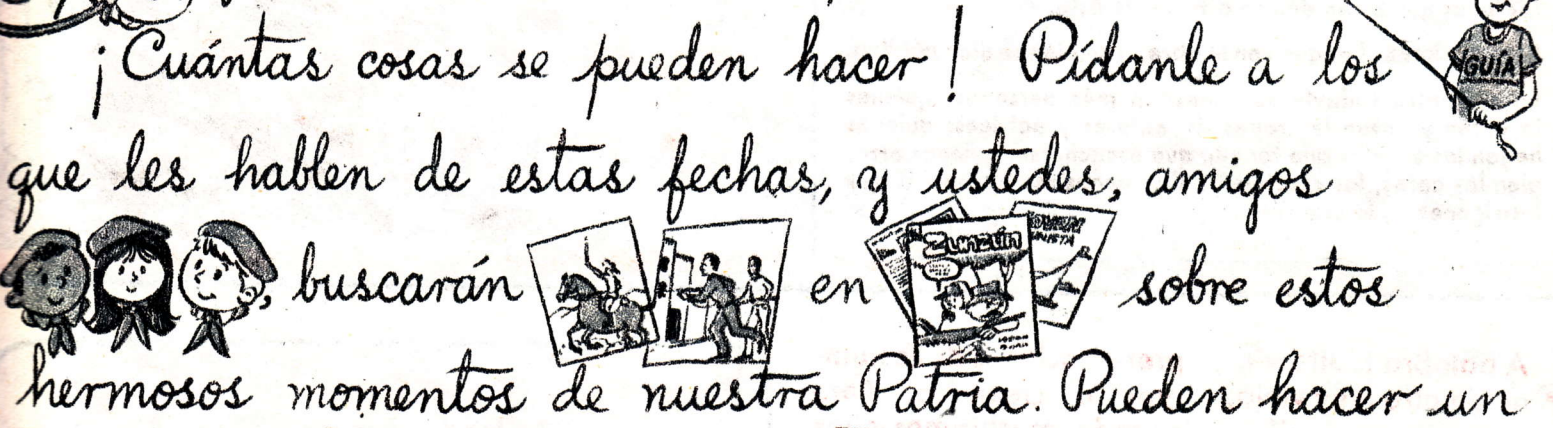 ¡Cuántas cosas se pueden hacer! Pídanle a los
GUÍA
que les hablen de estas fechas, y ustedes, amigos
, buscarán en sobre estos
ZUNZÚN
hermosos momentos de nuestra Patria. Pueden hacer un